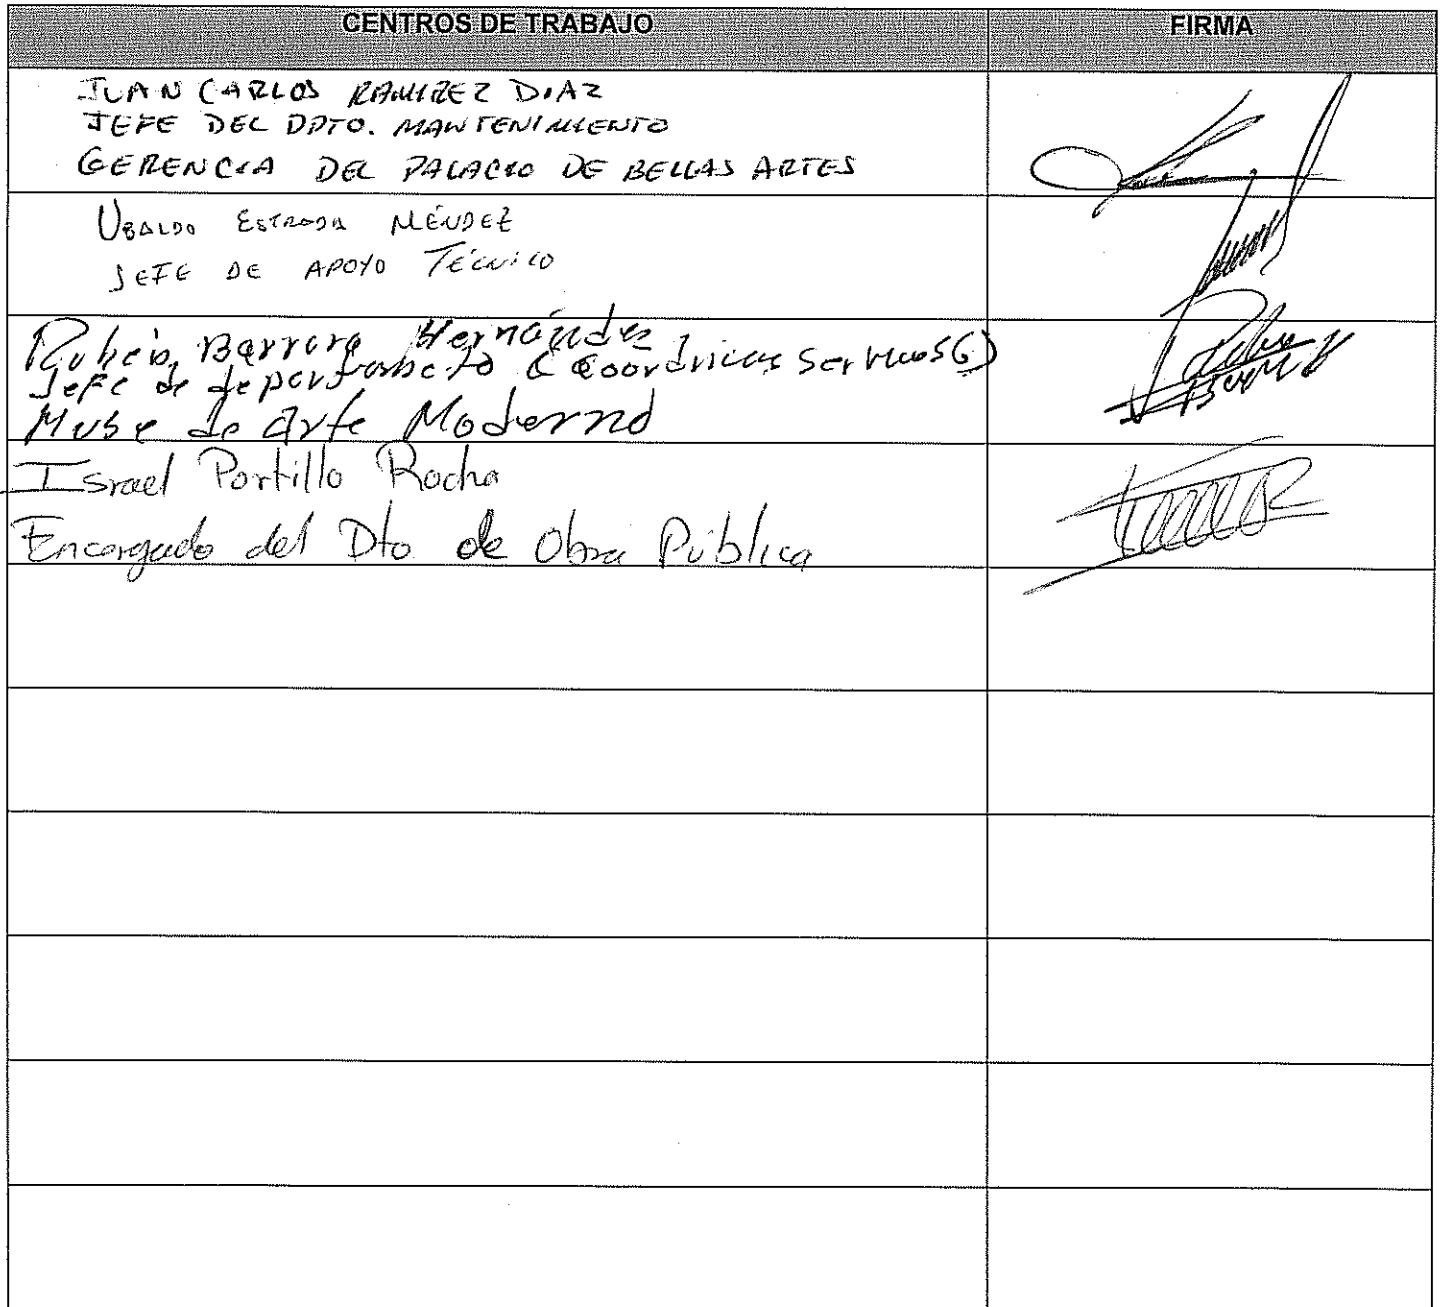 CENTROS DE TRABAJO FIRMA
JUAN CARLOS RAMIREZ DIAZ
JEFE DEL DPTO. MANTENIMIENTO
GERENCIA DEL PALACIO DE BELLAS ARTES
UBALDO ESTRADA MÉNDEZ
JEFE DE APOYO TÉCNICO
Rubén Barrera Hernández
Jefe de departamento
Muse de Arte Moderno
Israel Portillo Rocha
Encargado del Dto de Obra Pública